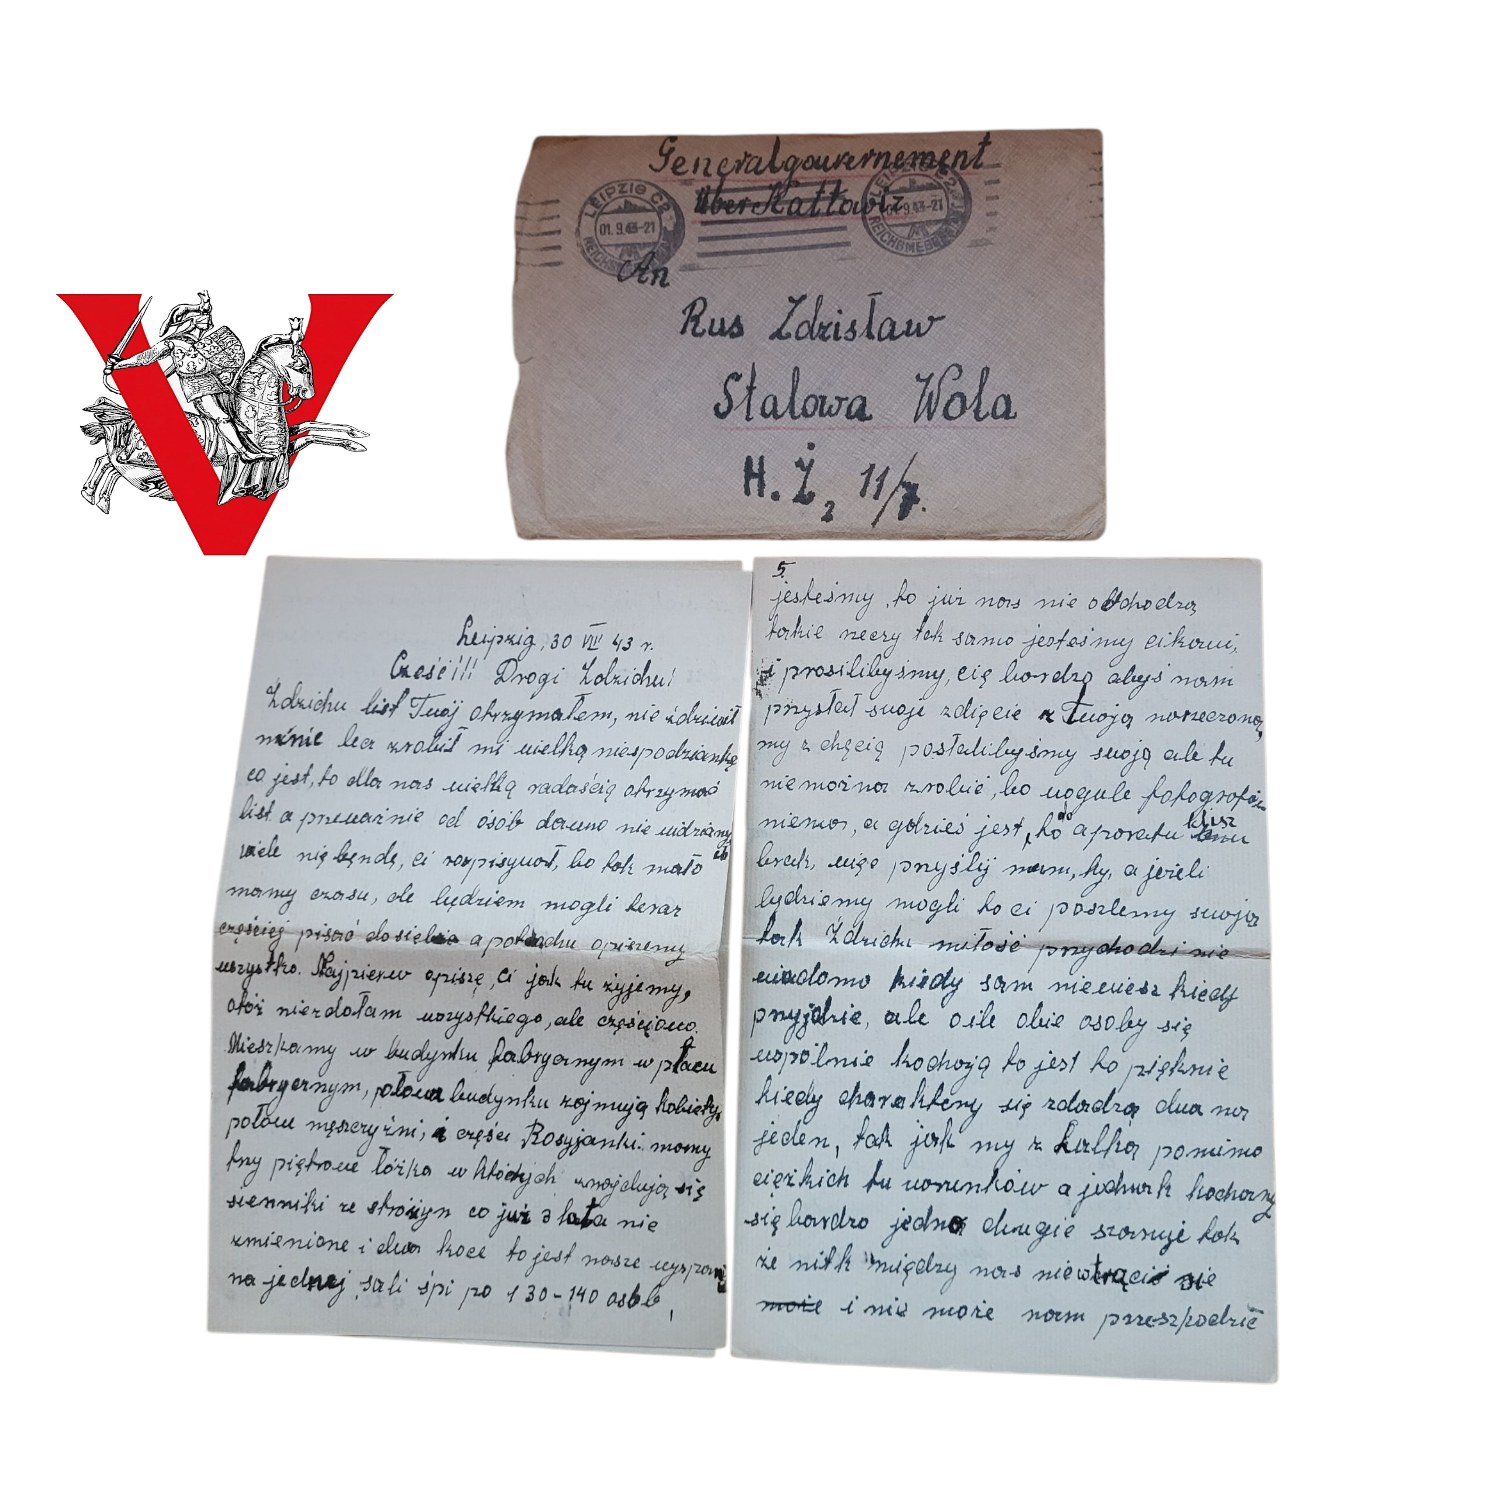 Generalgouvernement
über Kattowitz
LEIPZIG C2
01.9.43-21
REICHSMESSESTADT
LEIPZIG C2
01.9.43-21
REICHSMESSESTADT
An
Rus Zdzisław
Stalowa Wola
H. Ż 2 11/7.
V
Leipzig, 30 VIII 43 r.
Cześć!!! Drogi Zdzichu!
Zdzichu list Twój otrzymałem, nie zdziwił
mnie lecz zrobił mi wielką niespodziankę
co jest, to dla nas wielką radością otrzymać
list a przeważnie od osób dawno nie widzianych
wiele nię będę, ci rozpisywał, bo tak mało
mamy czasu, ale będziem mogli teraz
częściej pisać do siebie a potrochu opiszemy
wszystko. Najpierw opiszę, ci jak tu żyjemy,
otóż niezdołam wszystkiego, ale częściowo.
Mieszkamy w budynku fabrycznym w placu
fabrycznym, połowa budynku zajmują kobiety,
połowe męszczyźni, a części Rosyjanki. mamy
trzy piętrowe łóżka w których znajdują się
sienniki ze strożyn co już 3 lata nie
zmienione i dwa koce to jest nasze
na jednej sali śpi po 130-140 osób,
5.
jesteśmy, to już nas nie obchodzą
takie rzeczy tak samo jesteśmy cikawi,
i prosilibyśmy, cię bardzo abyś nam
przysłał swoje zdięcie z Twoją narzeczoną,
my z chęcią posłalibyśmy swoją ale tu
niemożna zrobić, bo wogule fotografów
niema, a gdzieś jest, to do aparatu klisz
brak, więc pryślij nam, ty, a jeżeli
będziemy mogli to ci poszlemy swoją
tak Zdzichu miłość przychodzi nie
wiadomo kiedy sam niewiesz kiedy
przyjdzie, ale oile obie osoby się
wspólnie kochają to jest to pięknie
kiedy charaktery się zdadzą dwa na
jeden, tak jak my z Lulką pomimo
ciężkich tu warunków a jednak kochamy
się bardzo jedno drugie szanuje tak
że nikt między nas niewtrąci się
może i nie może nam przeszkodzić